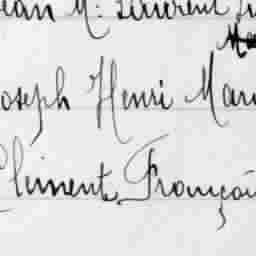 Jean M. Laurent
Joseph Henri Mari
Clément François